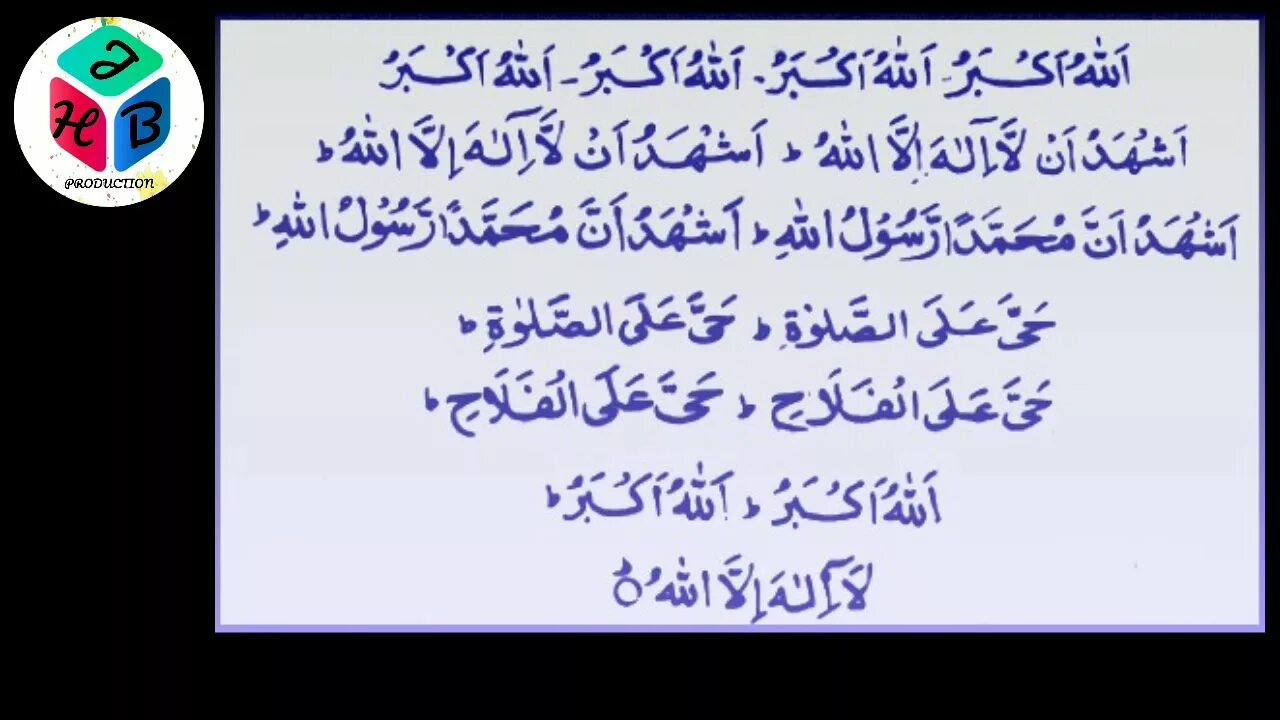 J
H B
PRODUCTION
اَللّٰهُ اَكْبَرُ - اَللّٰهُ اَكْبَرُ - اَللّٰهُ اَكْبَرُ - اَللّٰهُ اَكْبَرُ
اَشْهَدُ اَنْ لَّآ اِلٰهَ اِلَّا اللّٰهُ ؕ اَشْهَدُ اَنْ لَّآ اِلٰهَ اِلَّا اللّٰهُ ؕ
اَشْهَدُ اَنَّ مُحَمَّدًا رَّسُوْلُ اللّٰهِ ؕ اَشْهَدُ اَنَّ مُحَمَّدًا رَّسُوْلُ اللّٰهِ ؕ
حَیَّ عَلَی الصَّلٰوةِ ؕ حَیَّ عَلَی الصَّلٰوةِ ؕ
حَیَّ عَلَی الْفَلَاحِ ؕ حَیَّ عَلَی الْفَلَاحِ ؕ
اَللّٰهُ اَكْبَرُ ؕ اَللّٰهُ اَكْبَرُ ؕ
لَآ اِلٰهَ اِلَّا اللّٰهُ ؕ○